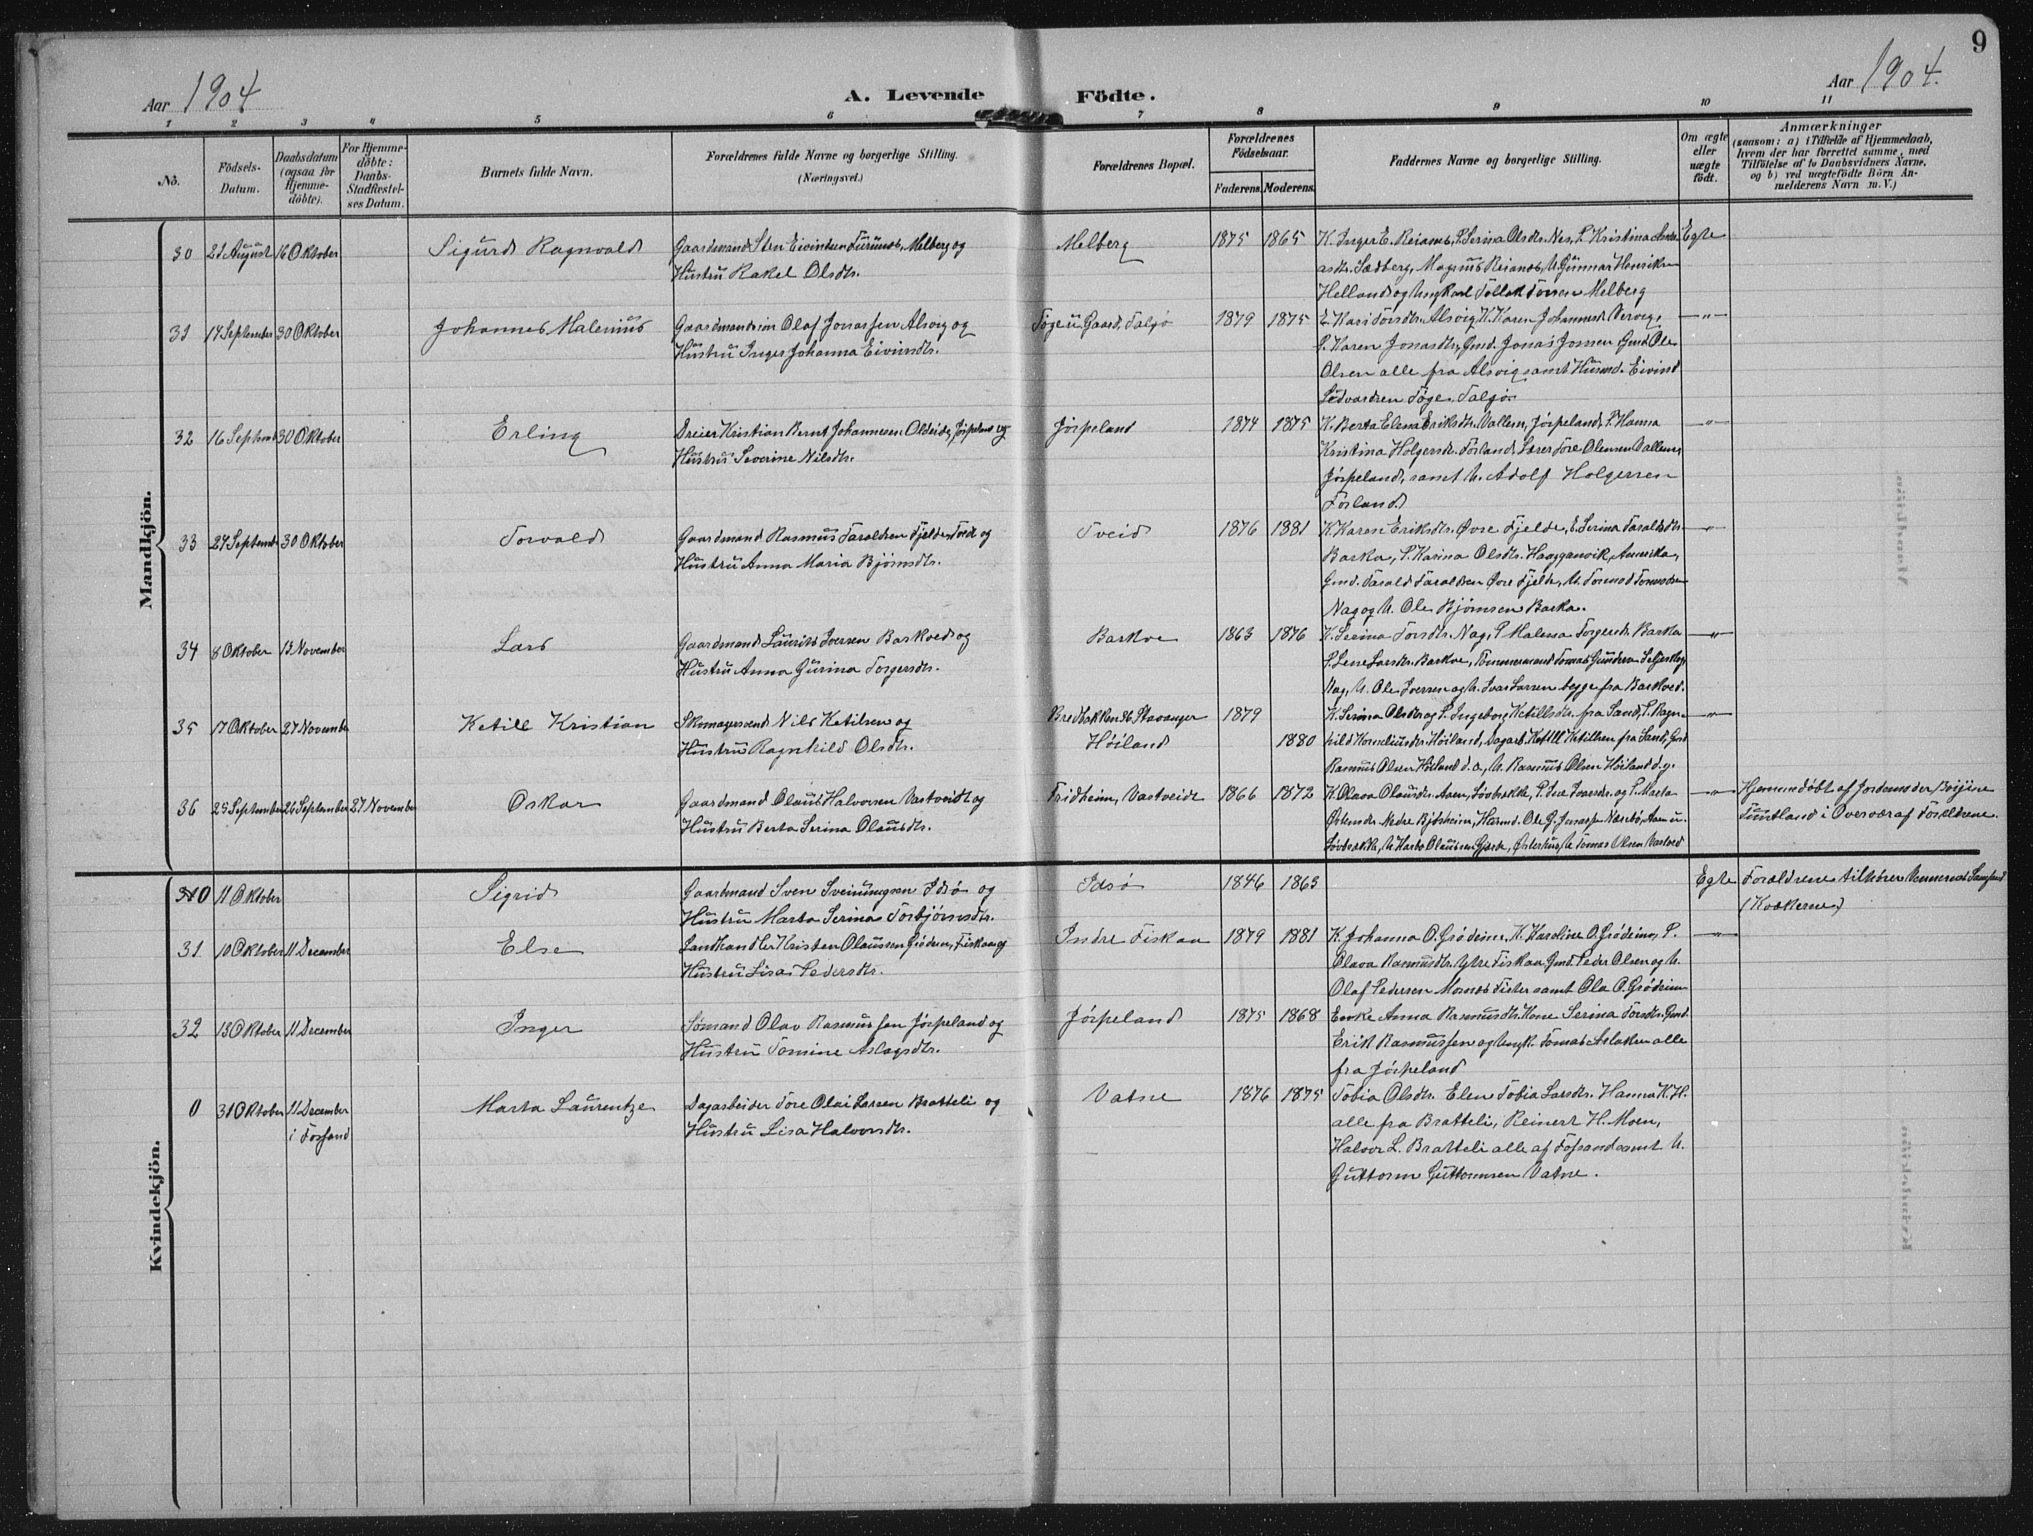 9
Aar 1904
A. Levende Födte.
Aar 1904.
1 2 3 4 5 6 7 8 9 10 11
No.
Födsels-Datum.
Daabsdatum (ogsaa for Hjemmedöbte).
For Hjemmedöbte: Daabs-Stadfæstelses Datum.
Barnets fulde Navn.
Forældrenes fulde Navne og borgerlige Stilling.
(Næringsvei.)
Forældrenes Bopæl.
Forældrenes Födselsaar.
Faderens. Moderens.
Faddernes Navne og borgerlige Stilling.
Om ægte eller uægte födt.
Anmærkninger
(saasom: a) i Tilfælde af Hjemmedaab, hvem der har forrettet samme, med Tilföielse af to Daabsvidners Navne, og b) ved uægtefödte Börn Anmelderens Navn m. V.)
Mandkjön.
30 21 August 16 Oktober Sigurd Ragnvald Gaardmand Sten Eivindsen Turunes, Melberg og Melberg 1875 1865 K. Inger E. Reianes, P. Serina Olsdtr. Nes, P. Kristina Egte
Hustru Rakel Olsdtr. Sædberg, Magnus Reianes, U. Gunnar Henriksen
Helland og Ungkarl Tollak Torsen Melberg
31 17 September 30 Oktober Johannes Malenius Gaardmandssøn Olaf Jonassen Alsvig og Gaard, Talgø 1879 1875 E. Kari Torsdtr. Alsvig, K. Karen Johannesd. —"—
Hustru Inger Johanna Eivindsdtr. P. Karen Jonasdtr, Gmd. Jonas Jonsen, Gmd Ole
Olsen alle fra Alsvig samt Husmd. Eivind
Edvardsen Tøge, Talgø
32 16 Septemb 30 Oktober Erling Dreier Kristian Bernt Johannesen Oldeide, Jørpeland og Jørpeland 1874 1875 K. Berta Elena Eriksdtr. Vallem, Jørpeland, P. Hanna —"—
Hustru Severine Nilsdtr. Kristina Holgersdtr. Førland, Lærer Tore Olensen Vallem,
Jørpeland, samt U. Adolf Holgersen
Førland
33 27 Septemb 30 Oktober Torvald Gaardmand Rasmus Taraldsen Fjelde, Tveid og Tveid 1876 1881 K. Karen Eriksdtr. Øvre Fjelde, E. Serina Taraldsdtr. —"—
Hustru Anna Maria Bjørnsdtr. Barka, P. Karina Olsdtr. Haagganvik, Amerika,
Gmd. Tarald Taraldsen Øvre Fjelde, U. Tormod Tormodsen
Nag og U. Ole Bjørnsen Barka.
34 8 Oktober 13 November Lars Gaardmand Laurits Iversen Barkved og Barkve 1863 1876 K. Serina Torsdtr. Nag, P. Malena Torgersdtr. Barka —"—
Hustru Anna Gurina Torgersdtr. P. Lene Larsdtr. Barkve, Tømmermand Tomas Gundersen
Nag, U. Ole Iversen og U. Ivar Larsen begge fra Barkved.
35 17 Oktober 27 November Ketill Kristian Skomagersvend Nils Ketilsen og Bredbakken 26 Stavanger 1879 K. Serina Olsdtr og P. Ingeborg Ketillsdtr. fra Sand, P. Ragn- —"—
Hustru Ragnhild Olsdtr. Høiland 1880 hild Korneliusdtr. Høiland, Dagarb. Ketill Ketillsen fra Sand, Gmd
Rasmus Olsen Høiland d. æ, U. Rasmus Olsen Høiland d. y.
36 25 September 26 September 27 November Oskar Gaardmand Olaus Halvorsen Vastveidt og Fridheim, Vastveidt 1866 1872 K. Olava Olausdtr. Aaen, Løvbrække, P. Ivarsdtr. og P. Marta —"— Hjemmedøbt af Jordemoder
Hustru Berta Serina Olausdtr. Nedre Bjørheim, Ole G. Jonassen Næsebø, Aaen u. Tuntland i Overvær af Forældrene.
Løvbrække, Olaussen Østerhus, U. Tomas Olsen Vastved
Kvindekjön.
30 11 Oktober Sigrid Gaardmand Sven Sveinungsen Idsø og Idsø 1846 1863 Egte Forældrene tilhører Vennernes Samfund
Hustru Marta Serina Torbjørnsdtr. (Kvækerne)
31 10 Oktober 11 December Else Landhandler Kristen Olaussen Grødeim, Fiskaa og Indre Fiskaa 1879 1881 K. Johanna O. Grødeim, K. Karoline O. Grødeim, P. —"—
Hustru Lisa Pedersdtr. Olava Rasmusdtr. Ytre Fiskaa, Gmd. Peder Olsen og U.
Olaf Pedersen samt Ola O. Grødeim
32 13 Oktober 11 December Inger Sømand Olav Rasmussen Jørpeland og Jørpeland 1875 1868 Enke Anna Rasmusdtr. Kone Serina Torsdtr. Gmd.
Hustru Tomine Aslagsdtr. Erik Rasmussen og Ungk. Tomas Aslaksen alle
fra Jørpeland
0 31 Oktober 11 December Marta Laurentze Dagarbeider Tore Olai Larsen Bratteli og Vatne 1876 1875 Tobia Olsdtr. Elen Tobia Larsdtr. Hanna K. H.
i Fossand Hustru Lisa Halvorsdtr. alle fra Bratteli, Reinert H. Moen,
Halvor L. Bratteli alle af Fossand samt U.
Guttorm Guttormsen Vatne.